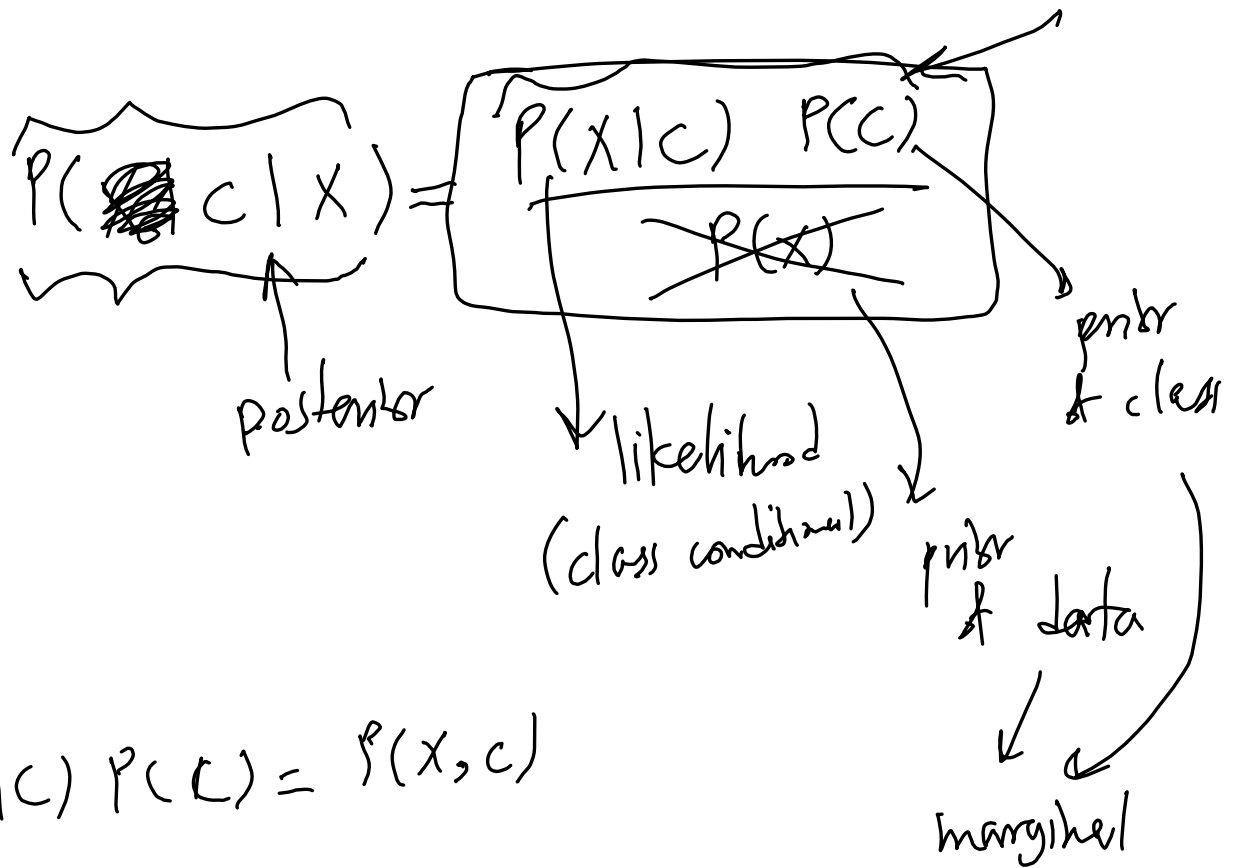 P(c|X) = P(X|C) P(C)
P(X)
posterior
likelihood
(class conditional)
prior
of class
prior
of data
marginal
|C) P(C) = P(X,C)